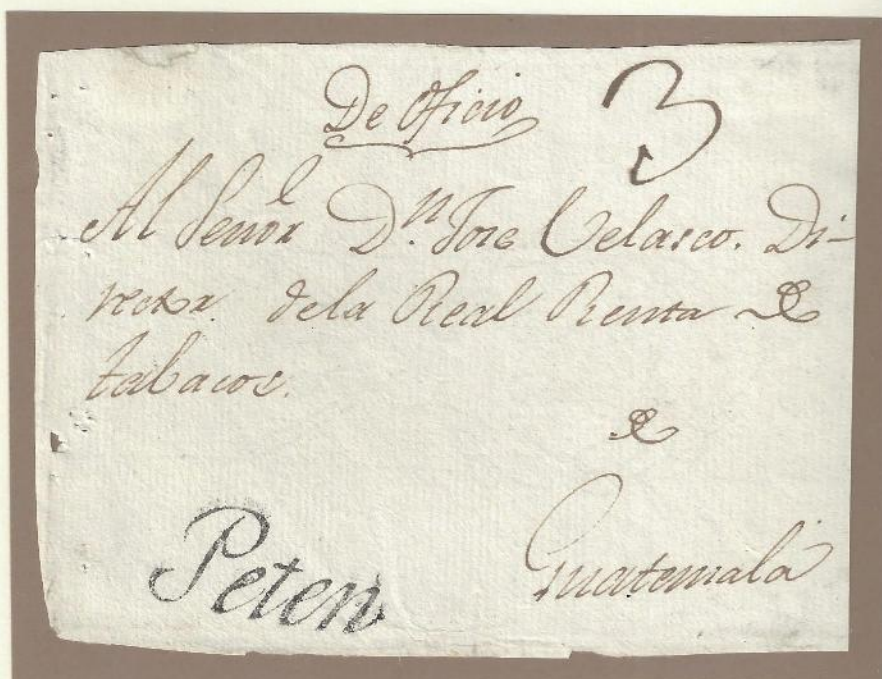 De Oficio 3
Al Señor Dn. Jose Velasco. Di-
rector. dela Real Renta de
tabacos.
de
Guatemala
Peten